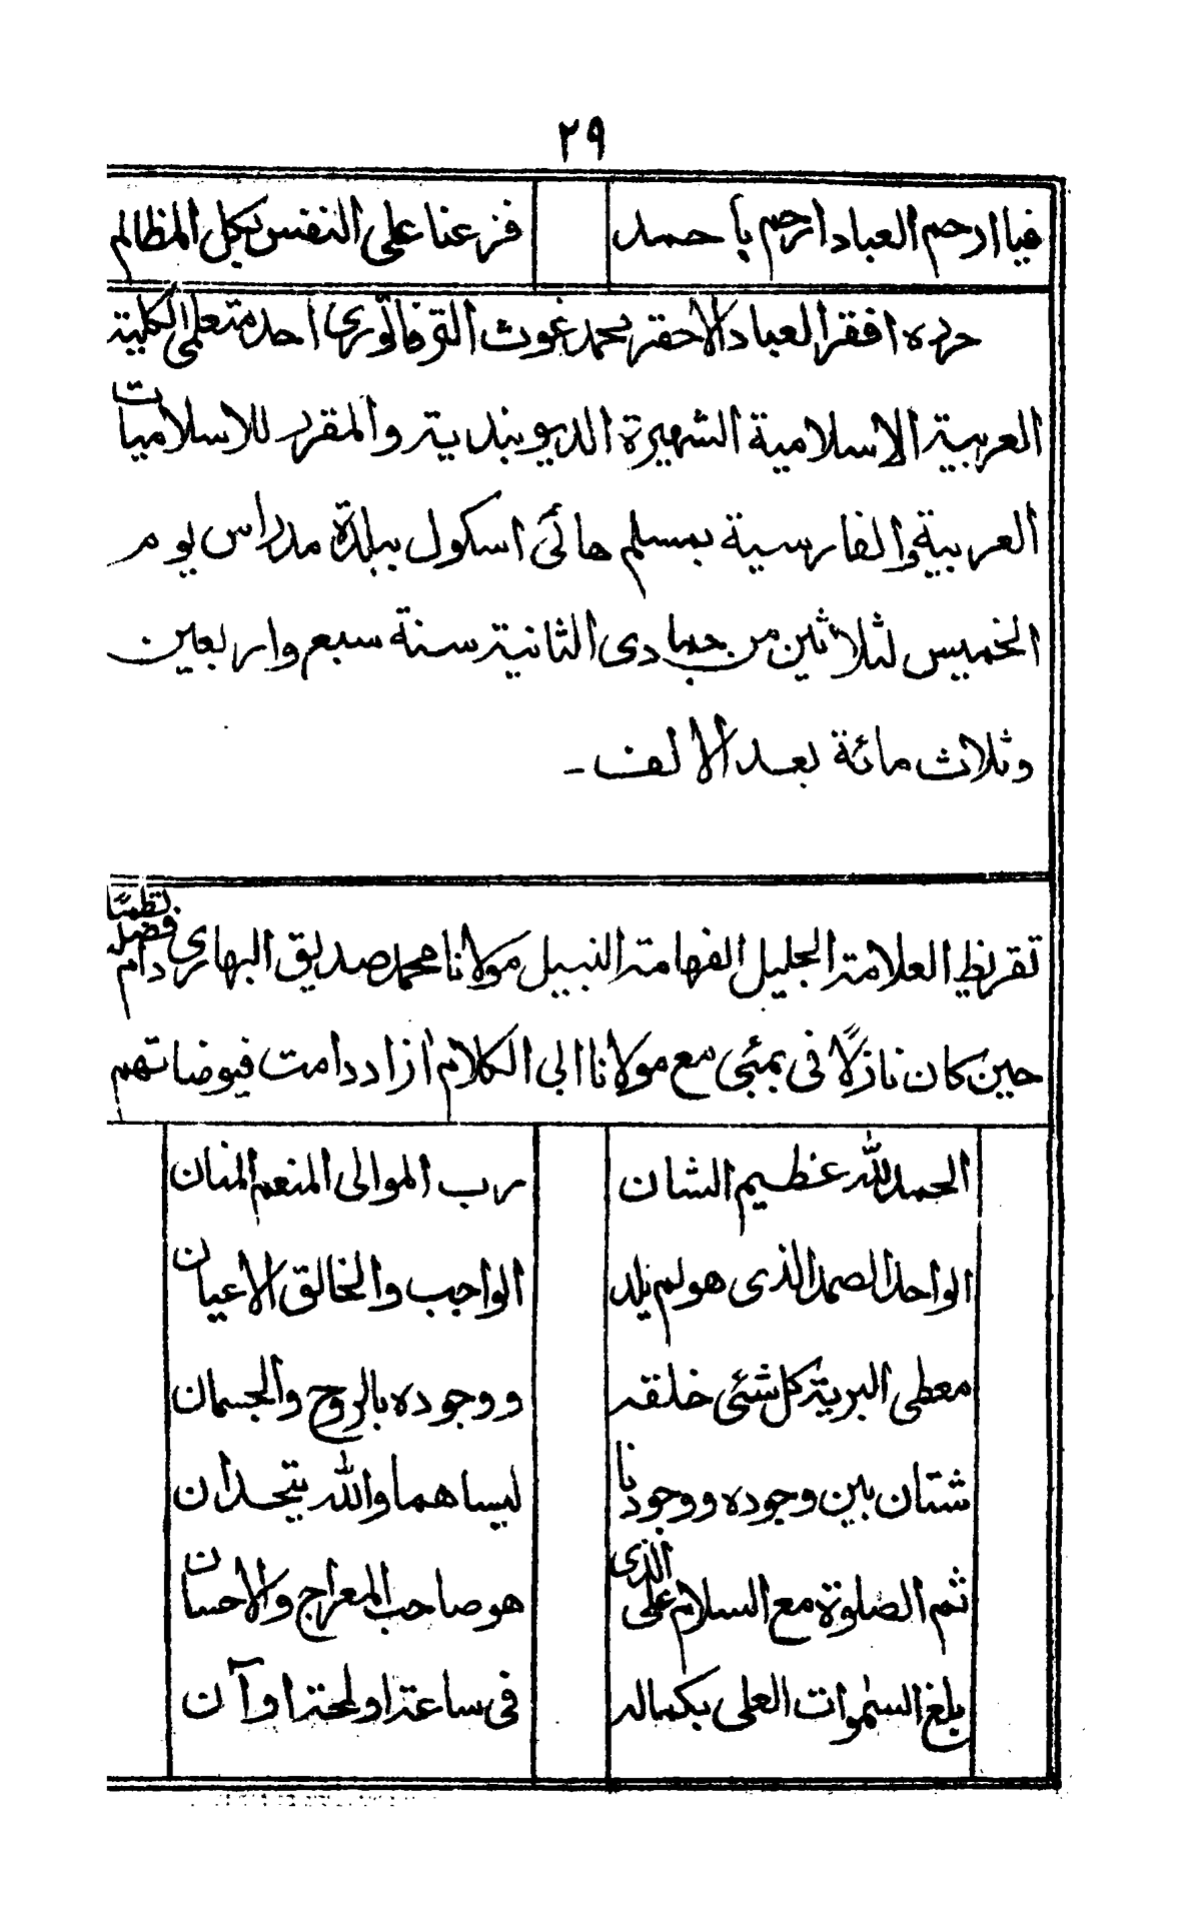 ٢٩
فيا ارحم العباد ارحم بأحمد فزعنا على النفس بكل المظالم
حرره افقر العباد الاحقر محمد غوث الترفاتوری احد متعلمی الکلیة
العربیة الاسلامیة الشهیرة الدیوبندیة والمقرر للاسلامیات
العربیة والفارسیة بمسلم هائی اسکول ببلدة مدراس یوم
الخمیس لثلاثین من جمادی الثانیة سنة سبع واربعین
وثلاث مائة بعد الالف ـ
تقریظ العلامة الجلیل الفهامة النبیل مولانا محمد صدیق البهاری دام فضله نظمًا
حین کان نازلًا فی بمبئی مع مولانا ابی الکلام آزاد دامت فیوضاتهم
الحمد لله عظیم الشان رب الموالی المنعم المنان
الواحد الصمد الذی هو لم یلد الواجب والخالق الاعیان
معطی البریة کل شئی خلقه ووجوده بالروح والجسمان
شتان بین وجوده ووجودنا لیسا هما والله یتحدان
ثم الصلوة مع السلام علی الذی هو صاحب المعراج والاحسان
بلغ السمٰوات العلی بکماله فی ساعة او لمحة او آن